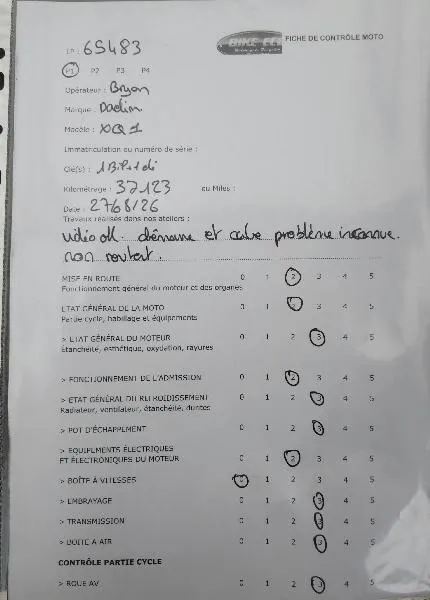 BIKE ECO
FICHE DE CONTRÔLE MOTO
LP : 65483
P1 P2 P3 P4
Opérateur : Bryan
Marque : Daelim
Modèle : XQ1
Immatriculation ou numéro de série :
Clé(s) : 1 Bip + 1 clé
Kilométrage : 37123 ou Miles :
Date : 2768/26
Travaux réalisés dans nos ateliers :
vidéo ok. démarre et cale problème inconnue.
non roulant.
MISE EN ROUTE 0 1 2 3 4 5
Fonctionnement général du moteur et des organes
ETAT GÉNÉRAL DE LA MOTO 0 1 2 3 4 5
Partie cycle, habillage et équipements
> ETAT GÉNÉRAL DU MOTEUR 0 1 2 3 4 5
Etanchéité, esthétique, oxydation, rayures
> FONCTIONNEMENT DE L'ADMISSION 0 1 2 3 4 5
> ETAT GÉNÉRAL DU REFROIDISSEMENT 0 1 2 3 4 5
Radiateur, ventilateur, étanchéité, durites
> POT D'ÉCHAPPEMENT 0 1 2 3 4 5
> EQUIPEMENTS ÉLECTRIQUES
ET ÉLECTRONIQUES DU MOTEUR 0 1 2 3 4 5
> BOÎTE À VITESSES 0 1 2 3 4 5
> EMBRAYAGE 0 1 2 3 4 5
> TRANSMISSION 0 1 2 3 4 5
> BOITE A AIR 0 1 2 3 4 5
CONTRÔLE PARTIE CYCLE
> ROUE AV 0 1 2 3 4 5